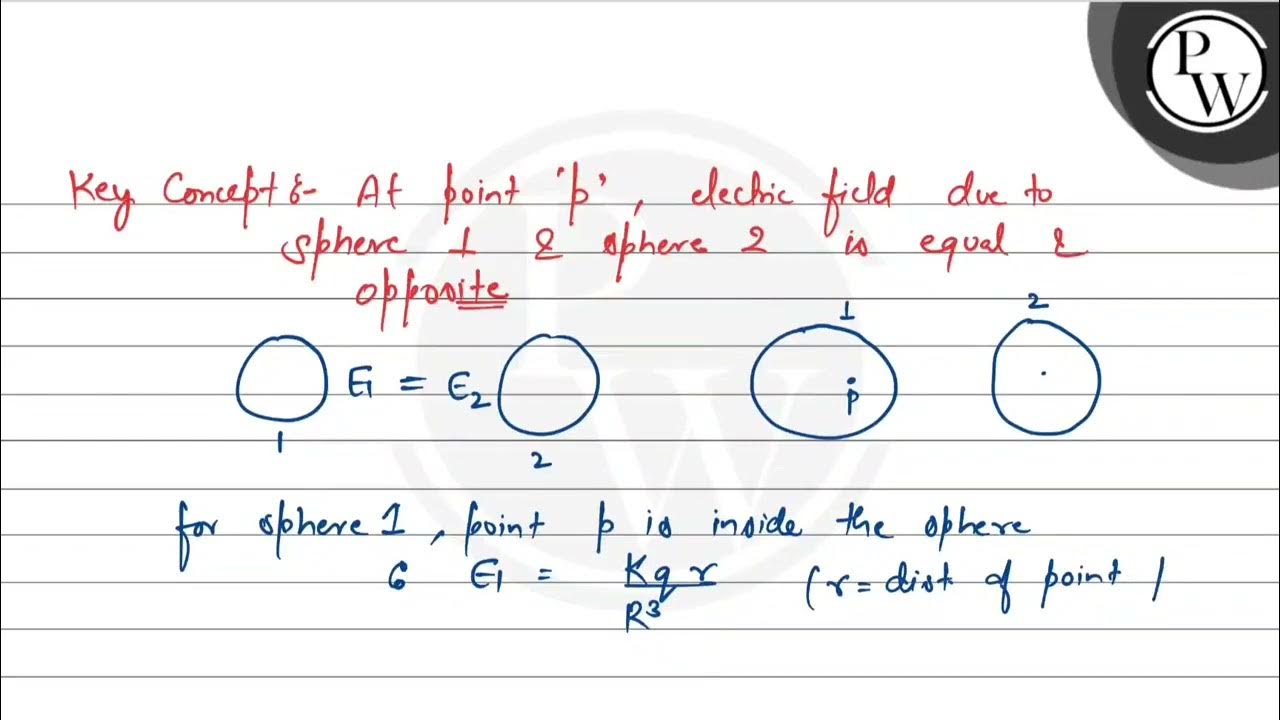 PW
Key Concept :- At point 'p', electric field due to
sphere 1 & sphere 2 is equal &
opposite
1
2
E1 = E2
p
1
2
for sphere 1, point p is inside the sphere
E1 = Kqr
R3
(r = dist of point